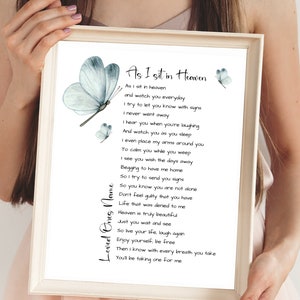 As I sit in Heaven
As I sit in heaven
and watch you everyday
I try to let you know with signs
I never went away
I hear you when you're laughing
And watch you as you sleep
I even place my arms around you
To calm you while weep
I see you wish the days away
Begging to have me home
So I try to send you signs
So you know you are not alone
Don't feel guilty that you have
Life that was denied to me
Heaven is truly beautiful
Just you wait and see
So live your life, laugh again
Enjoy yourself, be free
Then I know with every breath you take
You'll be taking one for me
Loved Ones Name